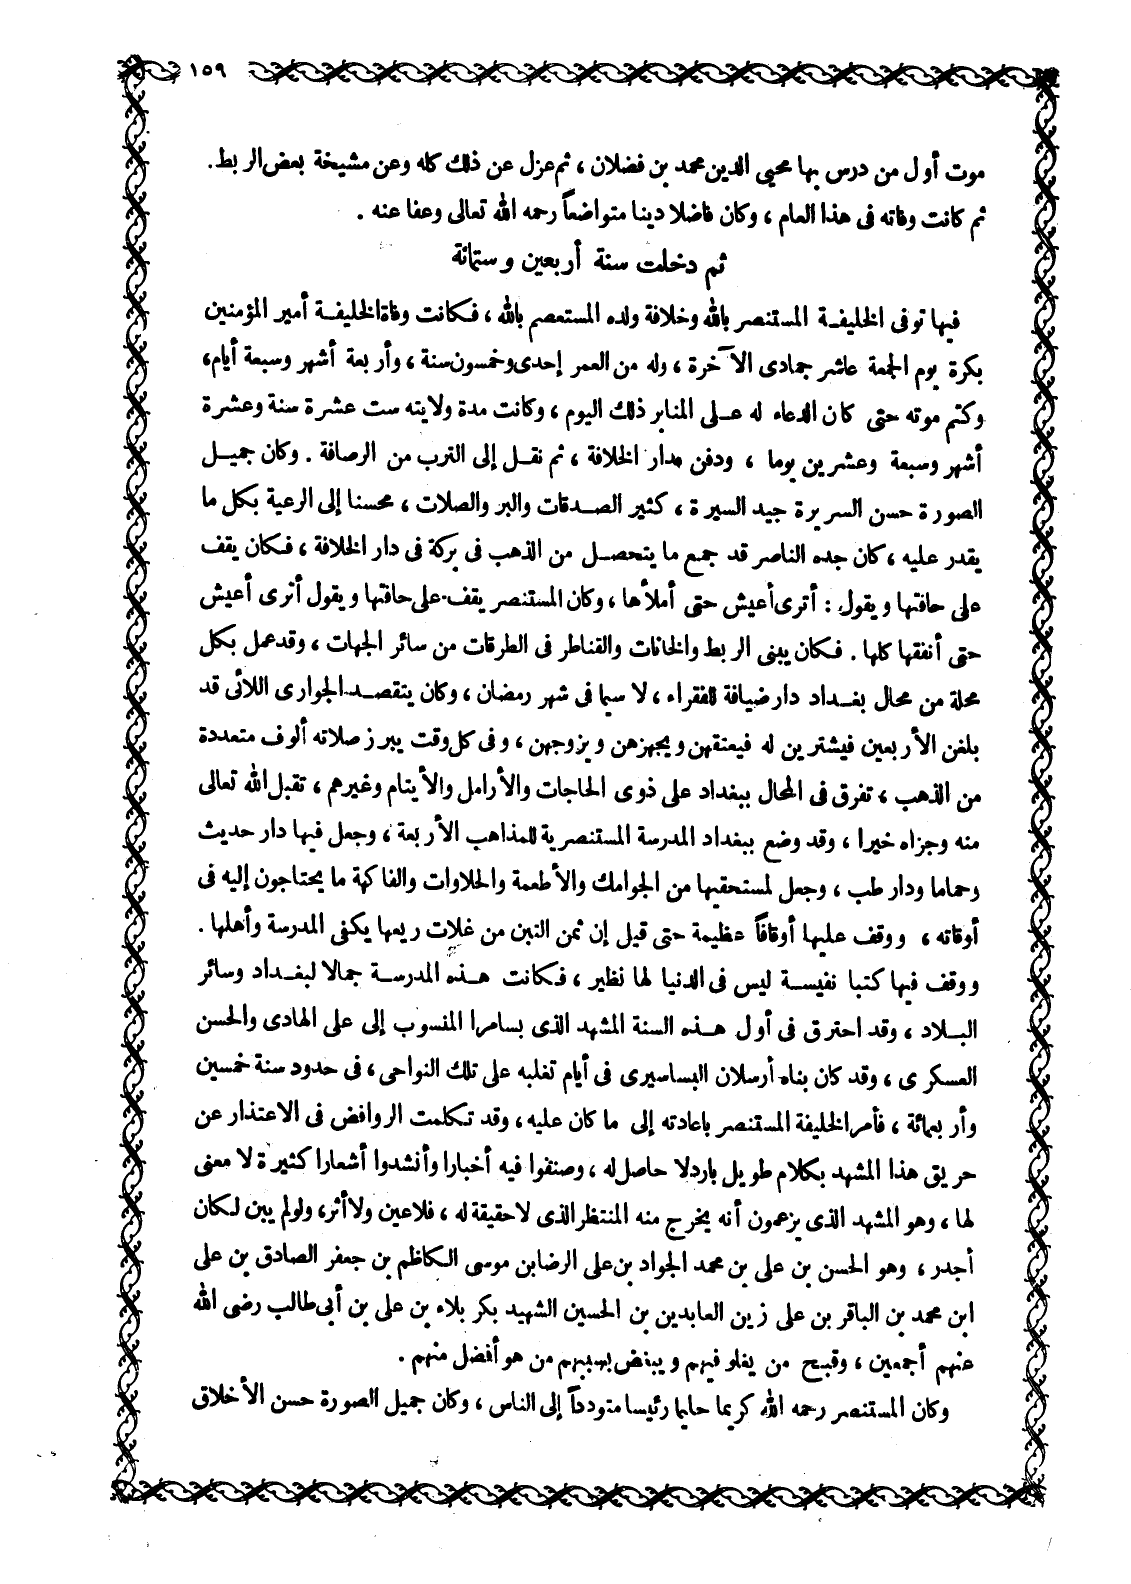 ١٥٩
موت أول من درس بها محيى الدين محمد بن فضلان ، ثم عزل عن ذلك كله وعن مشيخة بعض الربط .
ثم كانت وفاته فى هذا العام ، وكان فاضلا دينا متواضعاً رحمه الله تعالى وعفا عنه .
ثم دخلت سنة أربعين وستمائة
فيها توفى الخليفة المستنصر بالله وخلافة ولده المستعصم بالله ، فكانت وفاة الخليفة أمير المؤمنين
بكرة يوم الجمعة عاشر جمادى الآخرة ، وله من العمر إحدى وخمسون سنة ، وأربعة أشهر وسبعة أيام ،
وكتم موته حتى كان الدعاء له على المنابر ذلك اليوم ، وكانت مدة ولايته ست عشرة سنة وعشرة
أشهر وسبعة وعشرين يوما ، ودفن بدار الخلافة ، ثم نقل إلى الترب من الرصافة . وكان جميل
الصورة حسن السريرة جيد السيرة ، كثير الصدقات والبر والصلات ، محسنا إلى الرعية بكل ما
يقدر عليه ، كان جده الناصر قد جمع ما يتحصل من الذهب فى بركة فى دار الخلافة ، فكان يقف
على حافتها ويقول : أترى أعيش حتى أملأها ، وكان المستنصر يقف على حافتها ويقول أترى أعيش
حتى أنفقها كلها . فكان يبنى الربط والخانات والقناطر فى الطرقات من سائر الجهات ، وقد عمل بكل
محلة من محال بغداد دار ضيافة للفقراء ، لا سيما فى شهر رمضان ، وكان يتقصد الجوارى اللائى قد
بلغن الأربعين فيشترين له فيعتقهن ويجهزهن ويزوجهن ، وفى كل وقت يبرز صلاته ألوف متعددة
من الذهب ، تفرق فى المحال ببغداد على ذوى الحاجات والأرامل والأيتام وغيرهم ، تقبل الله تعالى
منه وجزاه خيرا ، وقد وضع ببغداد المدرسة المستنصرية للمذاهب الأربعة ، وجعل فيها دار حديث
وحماما ودار طب ، وجعل لمستحقيها من الجوامك والأطعمة والحلاوات والفاكهة ما يحتاجون إليه فى
أوقاته ، ووقف عليها أوقافاً عظيمة حتى قيل إن ثمن التبن من غلات ريعها يكفى المدرسة وأهلها .
ووقف فيها كتبا نفيسة ليس فى الدنيا لها نظير ، فكانت هذه المدرسة جمالا لبغداد وسائر
البلاد ، وقد احترق فى أول هذه السنة المشهد الذى بسامرا المنسوب إلى على الهادى والحسن
العسكرى ، وقد كان بناه أرسلان البساسيرى فى أيام تغلبه على تلك النواحى ، فى حدود سنة خمسين
وأربعمائة ، فأمر الخليفة المستنصر باعادته إلى ما كان عليه ، وقد تكلمت الروافض فى الاعتذار عن
حريق هذا المشهد بكلام طويل بارد لا حاصل له ، وصنفوا فيه أخبارا وأنشدوا أشعارا كثيرة لا معنى
لها ، وهو المشهد الذى يزعمون أنه يخرج منه المنتظر الذى لا حقيقة له ، فلا عين ولا أثر ، ولو لم يبن لكان
أجدر ، وهو الحسن بن على بن محمد الجواد بن على الرضا بن موسى الكاظم بن جعفر الصادق بن على
ابن محمد بن الباقر بن على زين العابدين بن الحسين الشهيد بكربلاء بن على بن أبى طالب رضى الله
عنهم أجمعين ، وقبح من يغلو فيهم ويبغض بسببهم من هو أفضل منهم .
وكان المستنصر رحمه الله كريما حليما رئيسا متودداً إلى الناس ، وكان جميل الصورة حسن الأخلاق